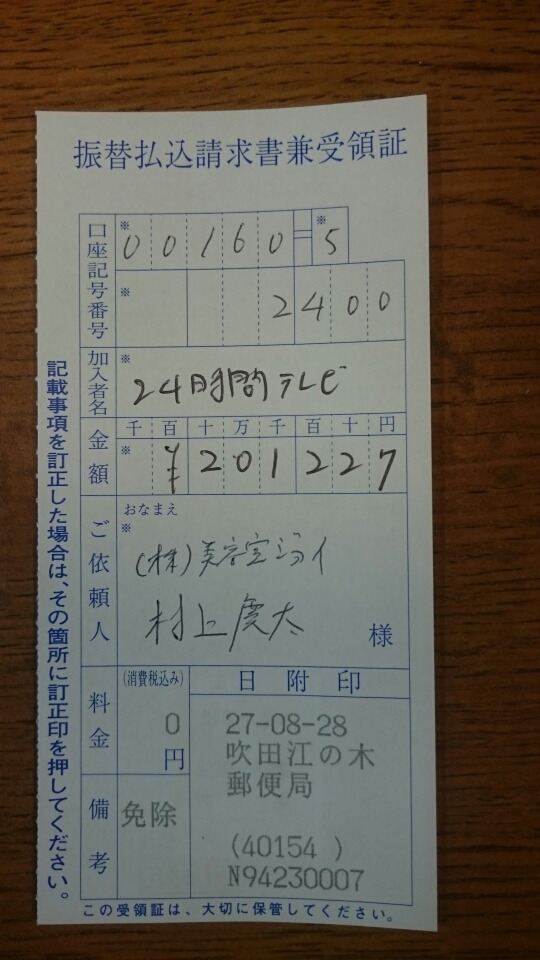 振替払込請求書兼受領証
口座記号番号
※ 00160=※5
※ 2400
加入者名
※ 24時間テレビ
金額
千百十万千百十円
※ ¥201227
ご依頼人
おなまえ
※
(株)美容室ジョイ
村上慶太
様
料金
(消費税込み)
0
円
備考
免除
日附印
27-08-28
吹田江の木
郵便局
(40154 )
N94230007
記載事項を訂正した場合は、その箇所に訂正印を押してください。
この受領証は、大切に保管してください。